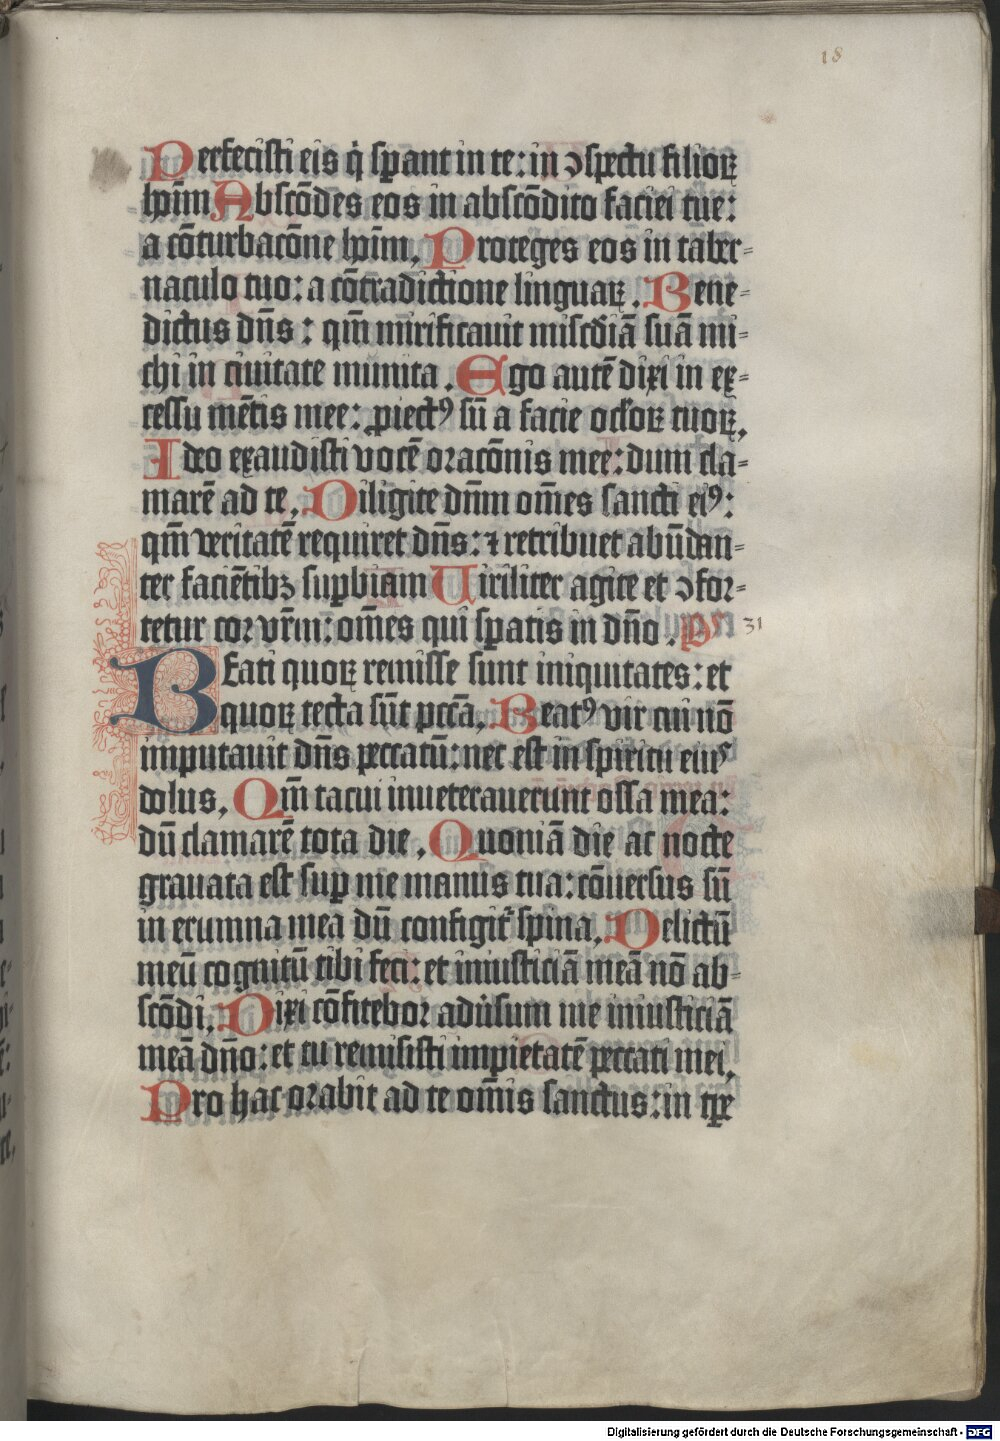 18
Perfecisti eis q̇ sꝑant in te: in ꝯspectu filioꝝ
hoı̄m Abscōdes eos in abscōdito faciei tue:
a cōturbacōne hoı̄m. Proteges eos in taber=
naculo tuo: a cōtradictione linguaꝝ. Bene=
dictus dn̄s: qm̄ mirificauit miscd̓iā suā mi=
chi in ciuitate munita. Ego autē dixi in ex=
cessu mētis mee: ꝓiectꝰ sū a facie oc̓loꝝ tuoꝝ.
Ideo exaudisti vocē oracōnis mee: dum cla=
marē ad te. Diligite dn̄m om̄es sancti eiꝰ:
qm̄ veritatē requiret dn̄s: ⁊ retribuet abūdan=
ter faciētibꝫ suꝑbiam Uiriliter agite et ꝯfor=
tetur cor vr̄m: om̄es qui sꝑatis in dn̄o. ps 31
Beati quoꝝ remisse sunt iniquitates: et
quoꝝ tecta sūt pccā. Beatꝰ vir cui nō
imputauit dn̄s peccatū: nec est in spiritu eiuˢ
dolus. Qm̄ tacui inueterauerunt ossa mea:
dū clamarē tota die. Quoniā die ac nocte
grauata est suꝑ me manus tua: cōuersus sū
in erumna mea dū configit̓ spina. Delictū
meū cognitū tibi feci: et iniusticiā meā nō ab=
scōdi. Dixi cōfitebor adu̓sum me iniusticiā
meā dn̄o: et tu remisisti impietatē peccati mei.
Pro hac orabit ad te om̄is sanctus: in tꝑe
Digitalisierung gefördert durch die Deutsche Forschungsgemeinschaft - DFG